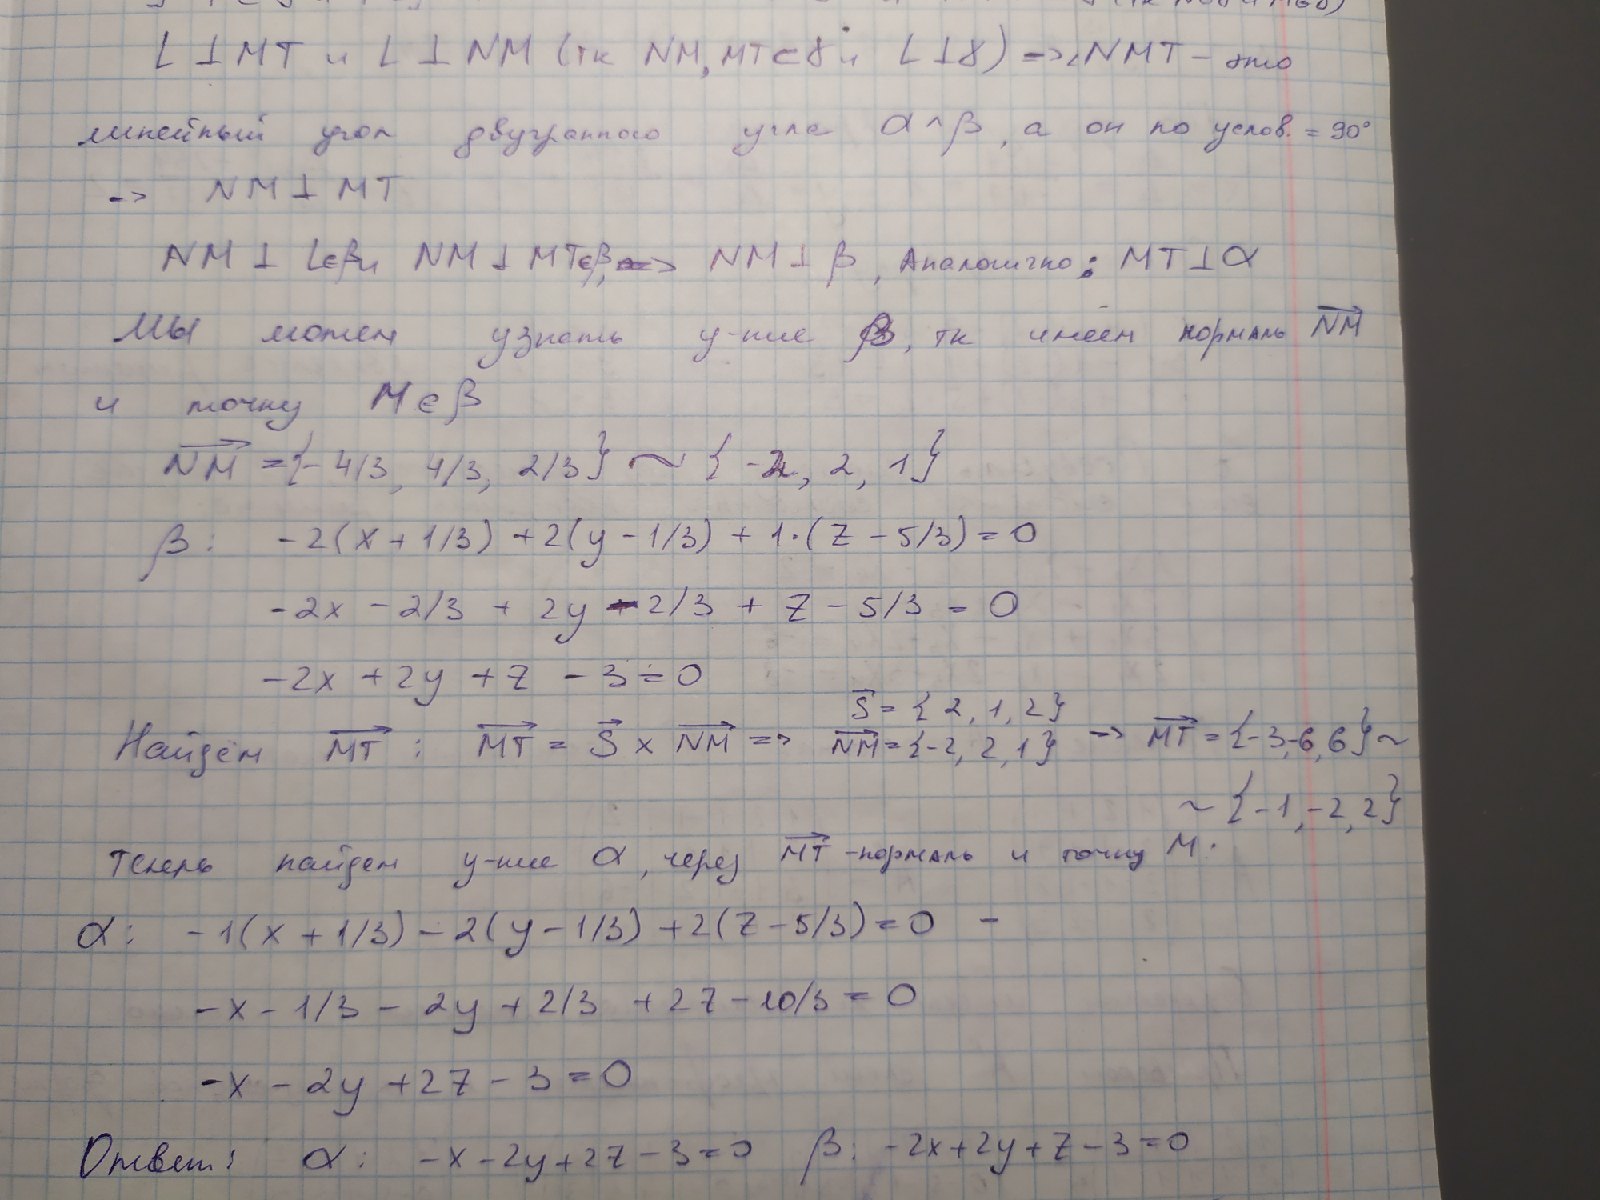 L ⊥ MT и L ⊥ NM (тк NM, MT ∈ γ и L ⊥ γ) => ∠NMT - это
линейный угол двугранного угла α ^ β, а он по услов. = 90°
-> NM ⊥ MT
NM ⊥ L∈β и NM ⊥ MT∈β, => NM ⊥ β, Аналогично: MT ⊥ α
Мы можем узнать у-ние β, тк имеем нормаль NM
и точку M ∈ β
NM = {-4/3, 4/3, 2/3} ~ {-2, 2, 1}
β: -2(x + 1/3) + 2(y - 1/3) + 1·(z - 5/3) = 0
-2x - 2/3 + 2y - 2/3 + z - 5/3 = 0
-2x + 2y + z - 3 = 0
S = {2, 1, 2}
Найдём MT : MT = S x NM => NM = {-2, 2, 1} -> MT = {-3,-6, 6} ~
~ {-1, -2, 2}
Теперь найдем у-ние α, через MT - нормаль и точку M.
α: -1(x + 1/3) - 2(y - 1/3) + 2(z - 5/3) = 0 -
-x - 1/3 - 2y + 2/3 + 2z - 10/3 = 0
-x - 2y + 2z - 3 = 0
Ответ: α: -x - 2y + 2z - 3 = 0 β: -2x + 2y + z - 3 = 0